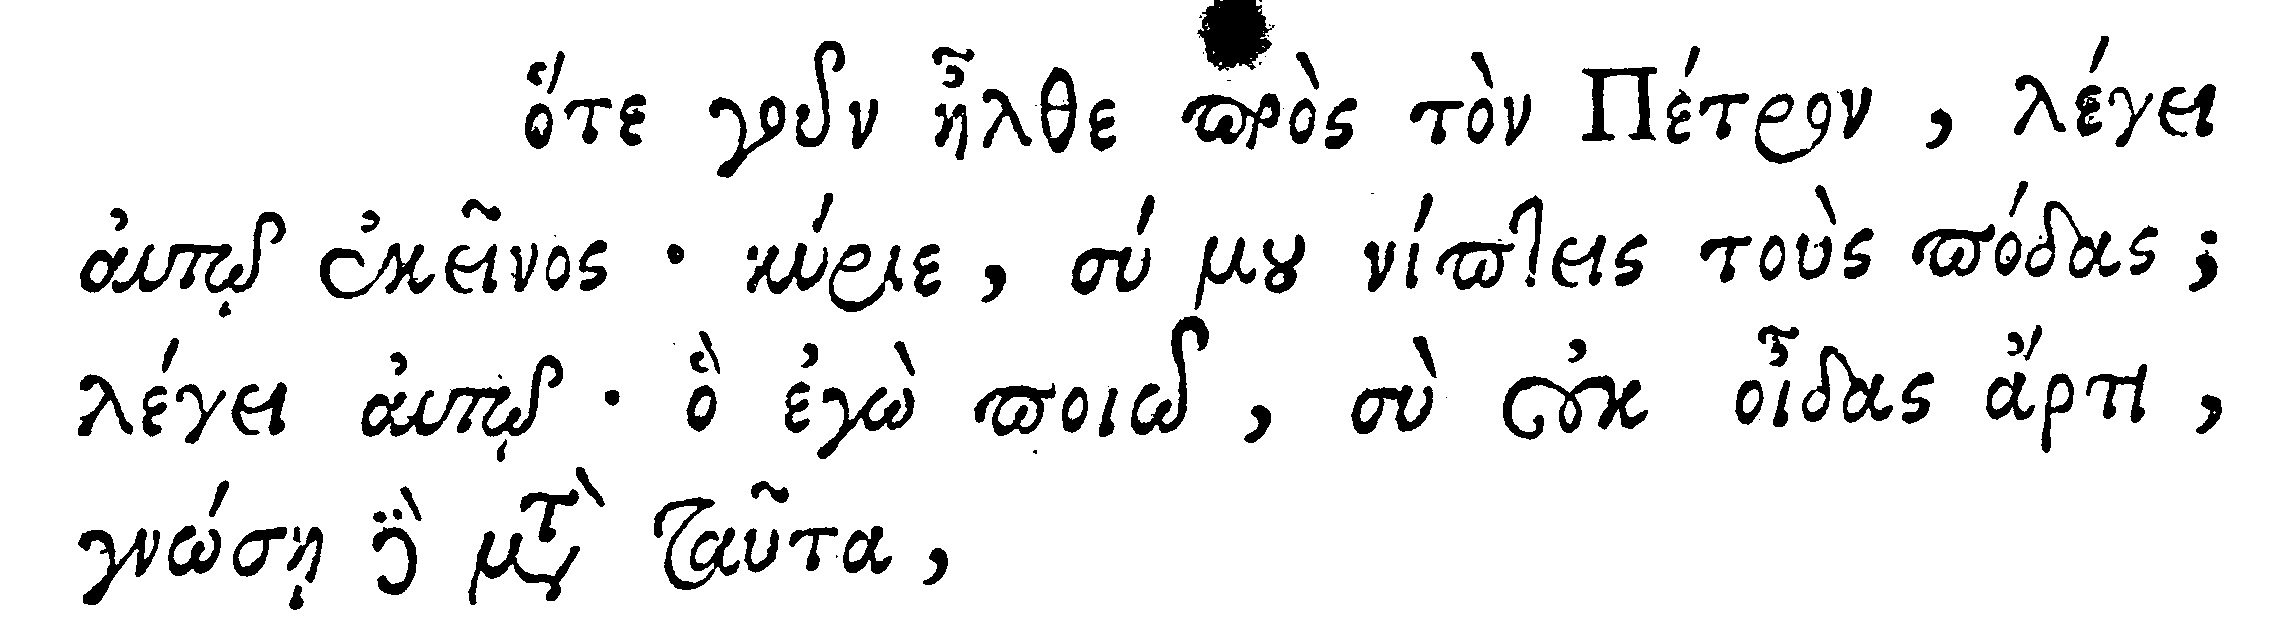 ὅτε γοῦν ἦλθε πρὸς τὸν Πέτρον, λέγει
ἀυτῷ ἐκεῖνος· κύριε, σύ μου νίπτεις τοὺς πόδας;
λέγει ἀυτῷ· ὃ ἐγὼ ποιῶ, σὺ οὐκ οἶδας ἄρτι,
γνώσῃ δὲ μετὰ ταῦτα,